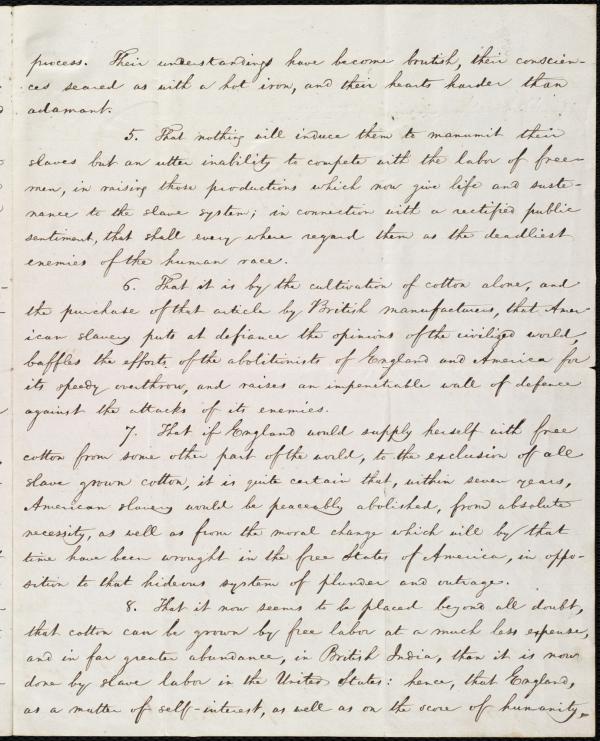 process. Their understandings have become brutish, their conscien-
ces seared as with a hot iron, and their hearts harder than
adamant.
5. That nothing will induce them to manumit their
slaves but an utter inability to compete with the labor of free-
men, in raising those productions which now give life and suste-
nance to the slave system; in connection with a rectified public
sentiment, that shall every where regard them as the deadliest
enemies of the human race.
6. That it is by the cultivation of cotton alone, and
the purchase of that article by British manufacturers, that Amer-
ican slavery puts at defiance the opinions of the civilized world,
baffles the efforts of the abolitionists of England and America for
its speedy overthrow, and raises an impenetrable wall of defence
against the attacks of its enemies.
7. That if England would supply herself with free
cotton from some other part of the world, to the exclusion of all
slave grown cotton, it is quite certain that, within seven years,
American slavery would be peaceably abolished, from absolute
necessity, as well as from the moral change which will by that
time have been wrought in the free States of America, in oppo-
sition to that hideous system of plunder and outrage.
8. That it now seems to be placed beyond all doubt,
that cotton can be grown by free labor at a much less expense,
and in far greater abundance, in British India, than it is now
done by slave labor in the United States: hence, that England,
as a matter of self-interest, as well as on the score of humanity,